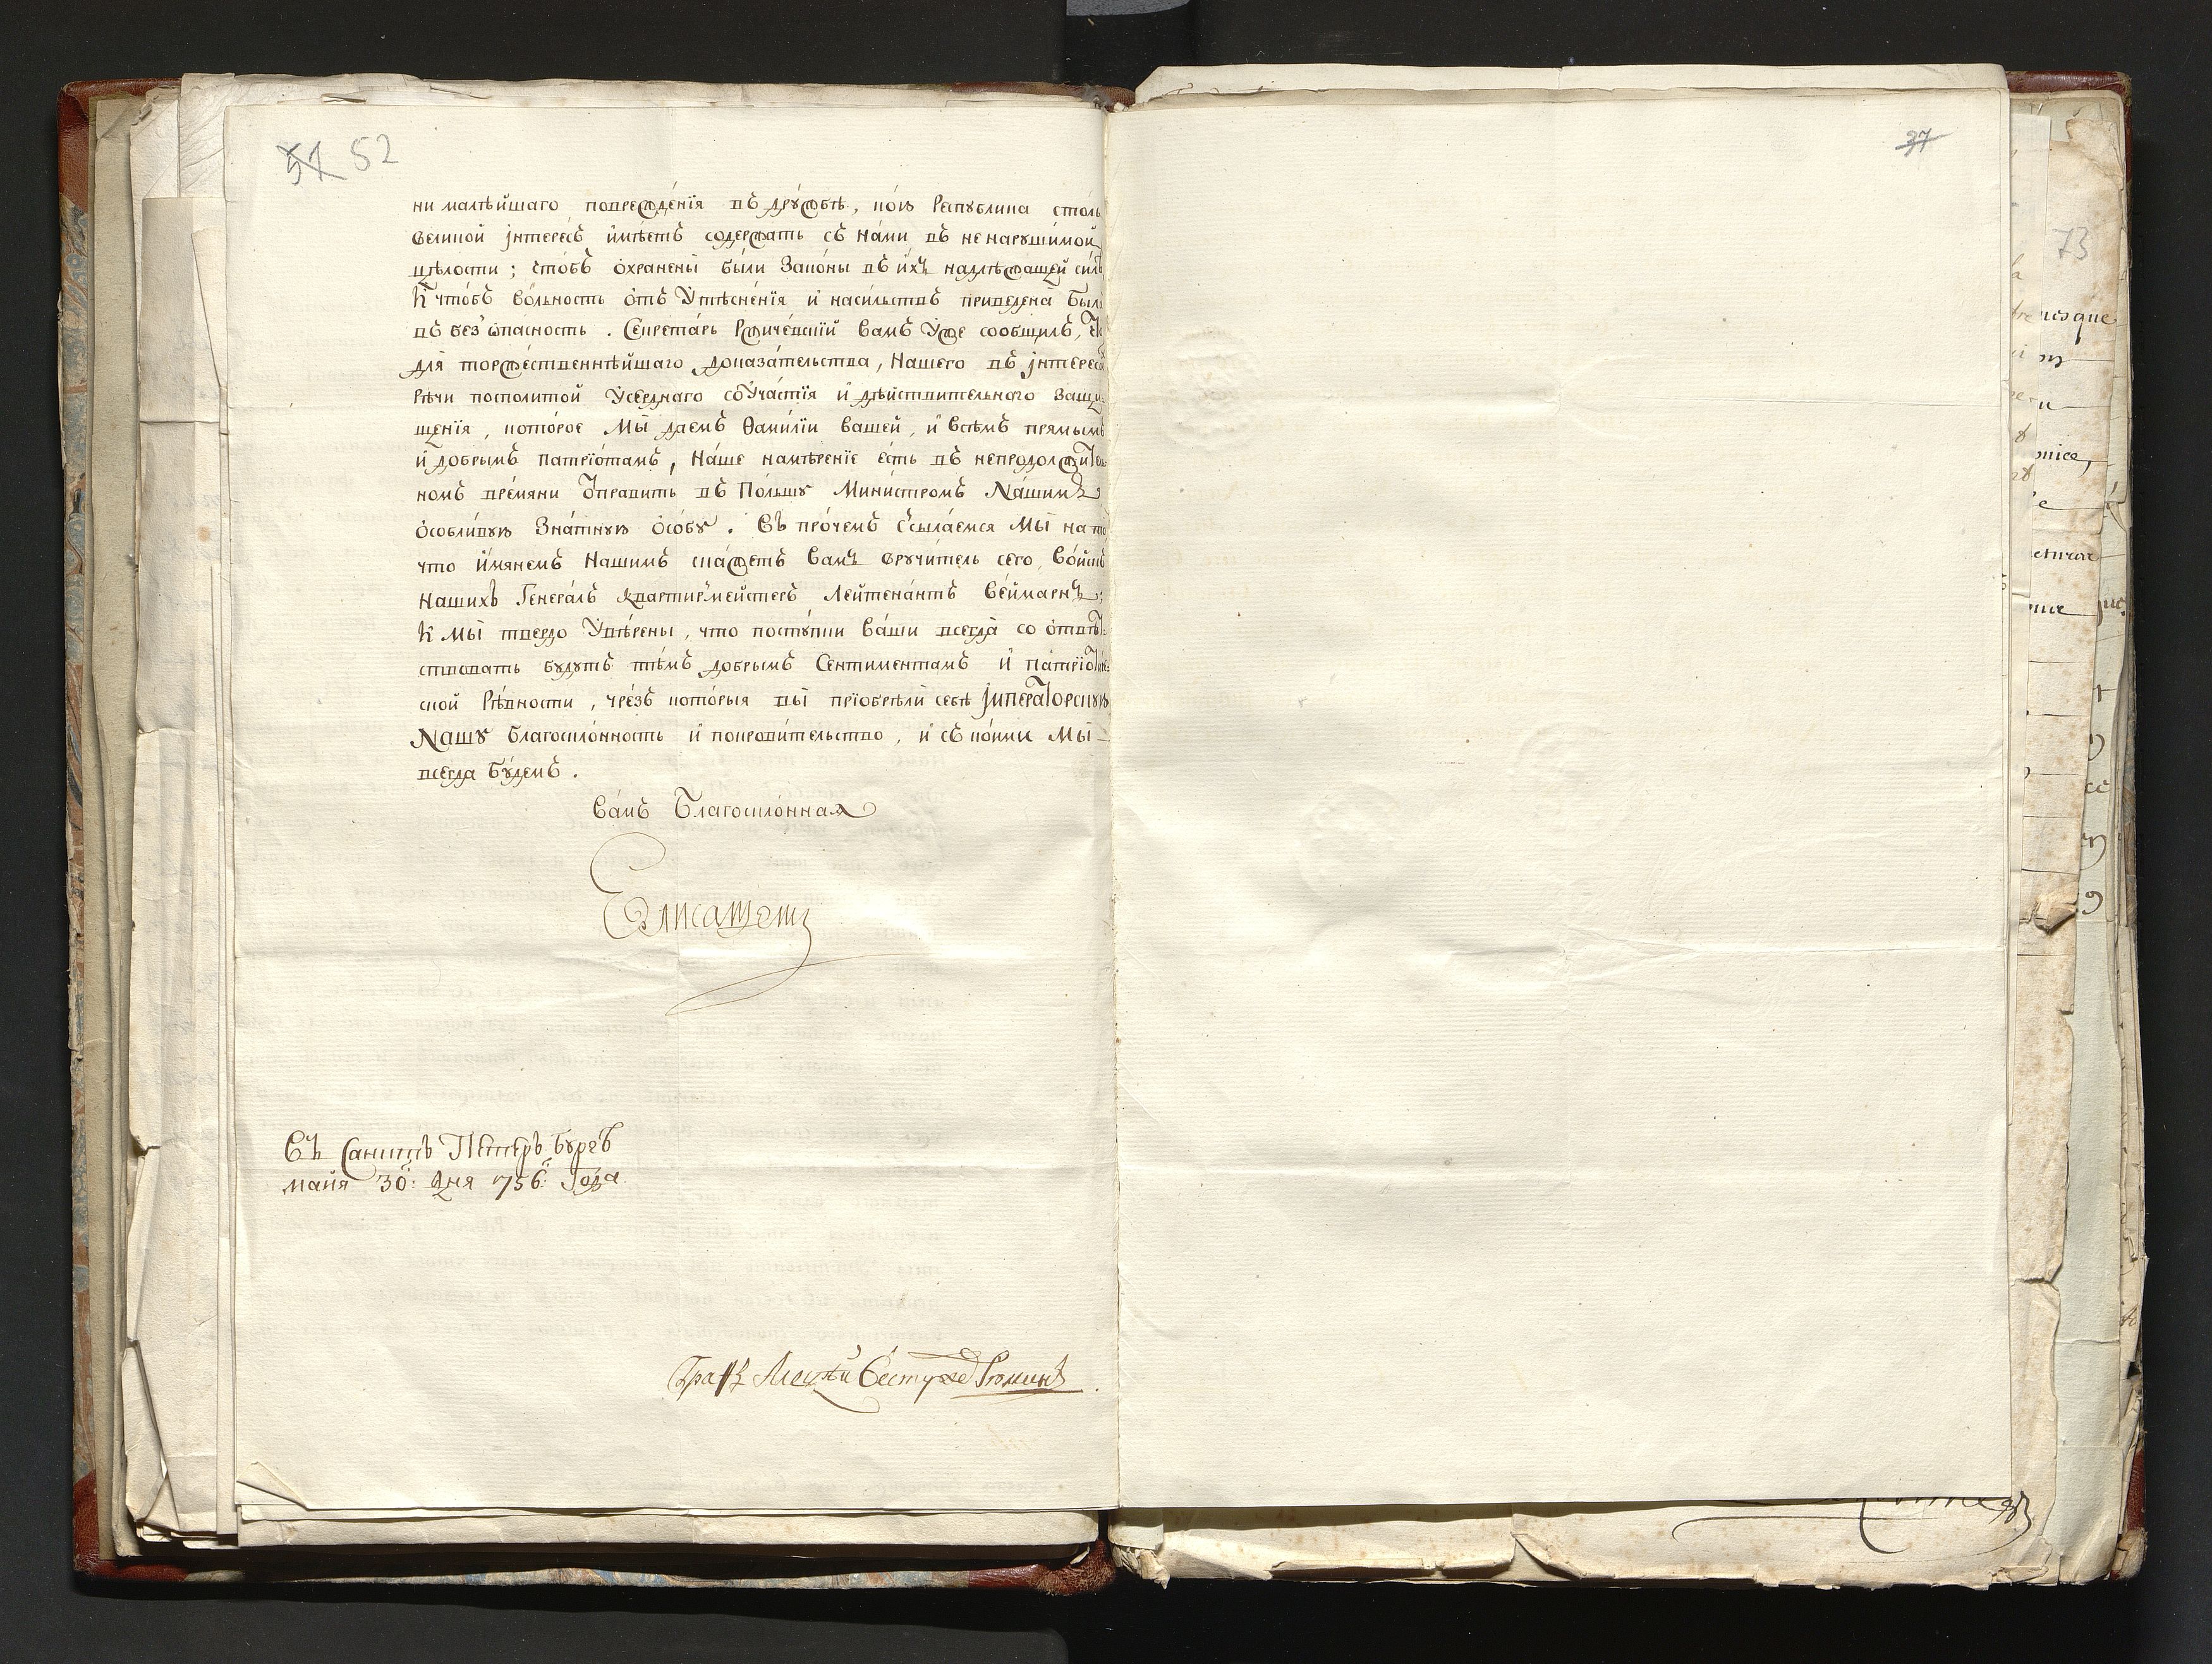 51 52
37
73
ни малѣйшаго поврежденїя въ дружбѣ, кою Республика столь
великой їнтересъ имѣетъ содержать съ Нами въ ненарушимой
цѣлости; чтобъ охранены были Законы въ ихъ надлѣжащей силѣ,
И чтобъ вольность отъ Утѣсненїя и насильствъ приведена была
въ безъопасность. Секретарь Ржичевскїй вамъ Уже сообщилъ, что
для торжественнѣйшаго доказательства, Нашего въ їнтересѣ
Рѣчи посполитой Усерднаго соУчастїя и дѣйствительного Защи-
щенїя, которое Мы даемъ Фамилїи вашей, и всѣмъ прямымъ
и добрымъ патрїотамъ, Наше намѣренїе есть въ непродолжитель-
номъ времяни Отправить въ Польшу Министромъ Нашимъ
особливую Знатную особу. Въ прочемъ Ссылаемся Мы на то
что Имянемъ Нашимъ скажетъ вамъ вручитель сего, войскъ
Нашихъ Генералъ квартирмейстеръ Лейтенантъ Веймарнъ;
И Мы твердо Увѣрены, что поступки ваши всегда со отвѣт-
ствовать будутъ тѣмъ добрымъ Сентиментамъ и патрїотиче-
ской Рѣвности, чрезъ которыя вы прїобрѣли себѣ Їмператорскую
Нашу благосклонность и покровительство, и съ коими Мы
всегда будемъ.
Вамъ Благосклонная
Елисаветъ
Въ Санктъ Петеръ Бургѣ
майя 30: дня 756: Года
Графъ Алексѣй Бестужевъ Рюминъ.